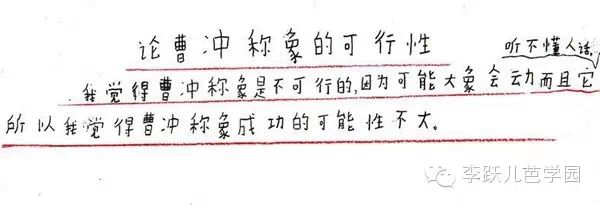 论曹冲称象的可行性
听不懂人话,
我觉得曹冲称象是不可行的,因为可能大象会动而且它
所以我觉得曹冲称象成功的可能性不大。
李跃儿芭学园